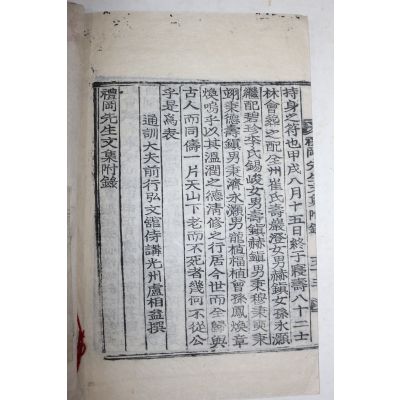 禮岡先生文集附錄
持身之符也甲戌八月十五日終于寢壽八十二士
林會葬之配全州崔氏壽嚴澄女男赫鎭女孫永灝
繼配碧珍李氏錫峻女男壽鎭赫鎭男秉穆秉奭秉
翊秉德壽鎭男秉濟永灝男龍植楅植曾孫鳳煥章
煥嗚乎以其溫潤之德淸修之行居今世而全歸與
古人而同儔一片天山下老而不死者幾何不從公
乎是爲表
通訓大夫前行弘文館侍講光州盧相益撰
禮岡先生文集附錄